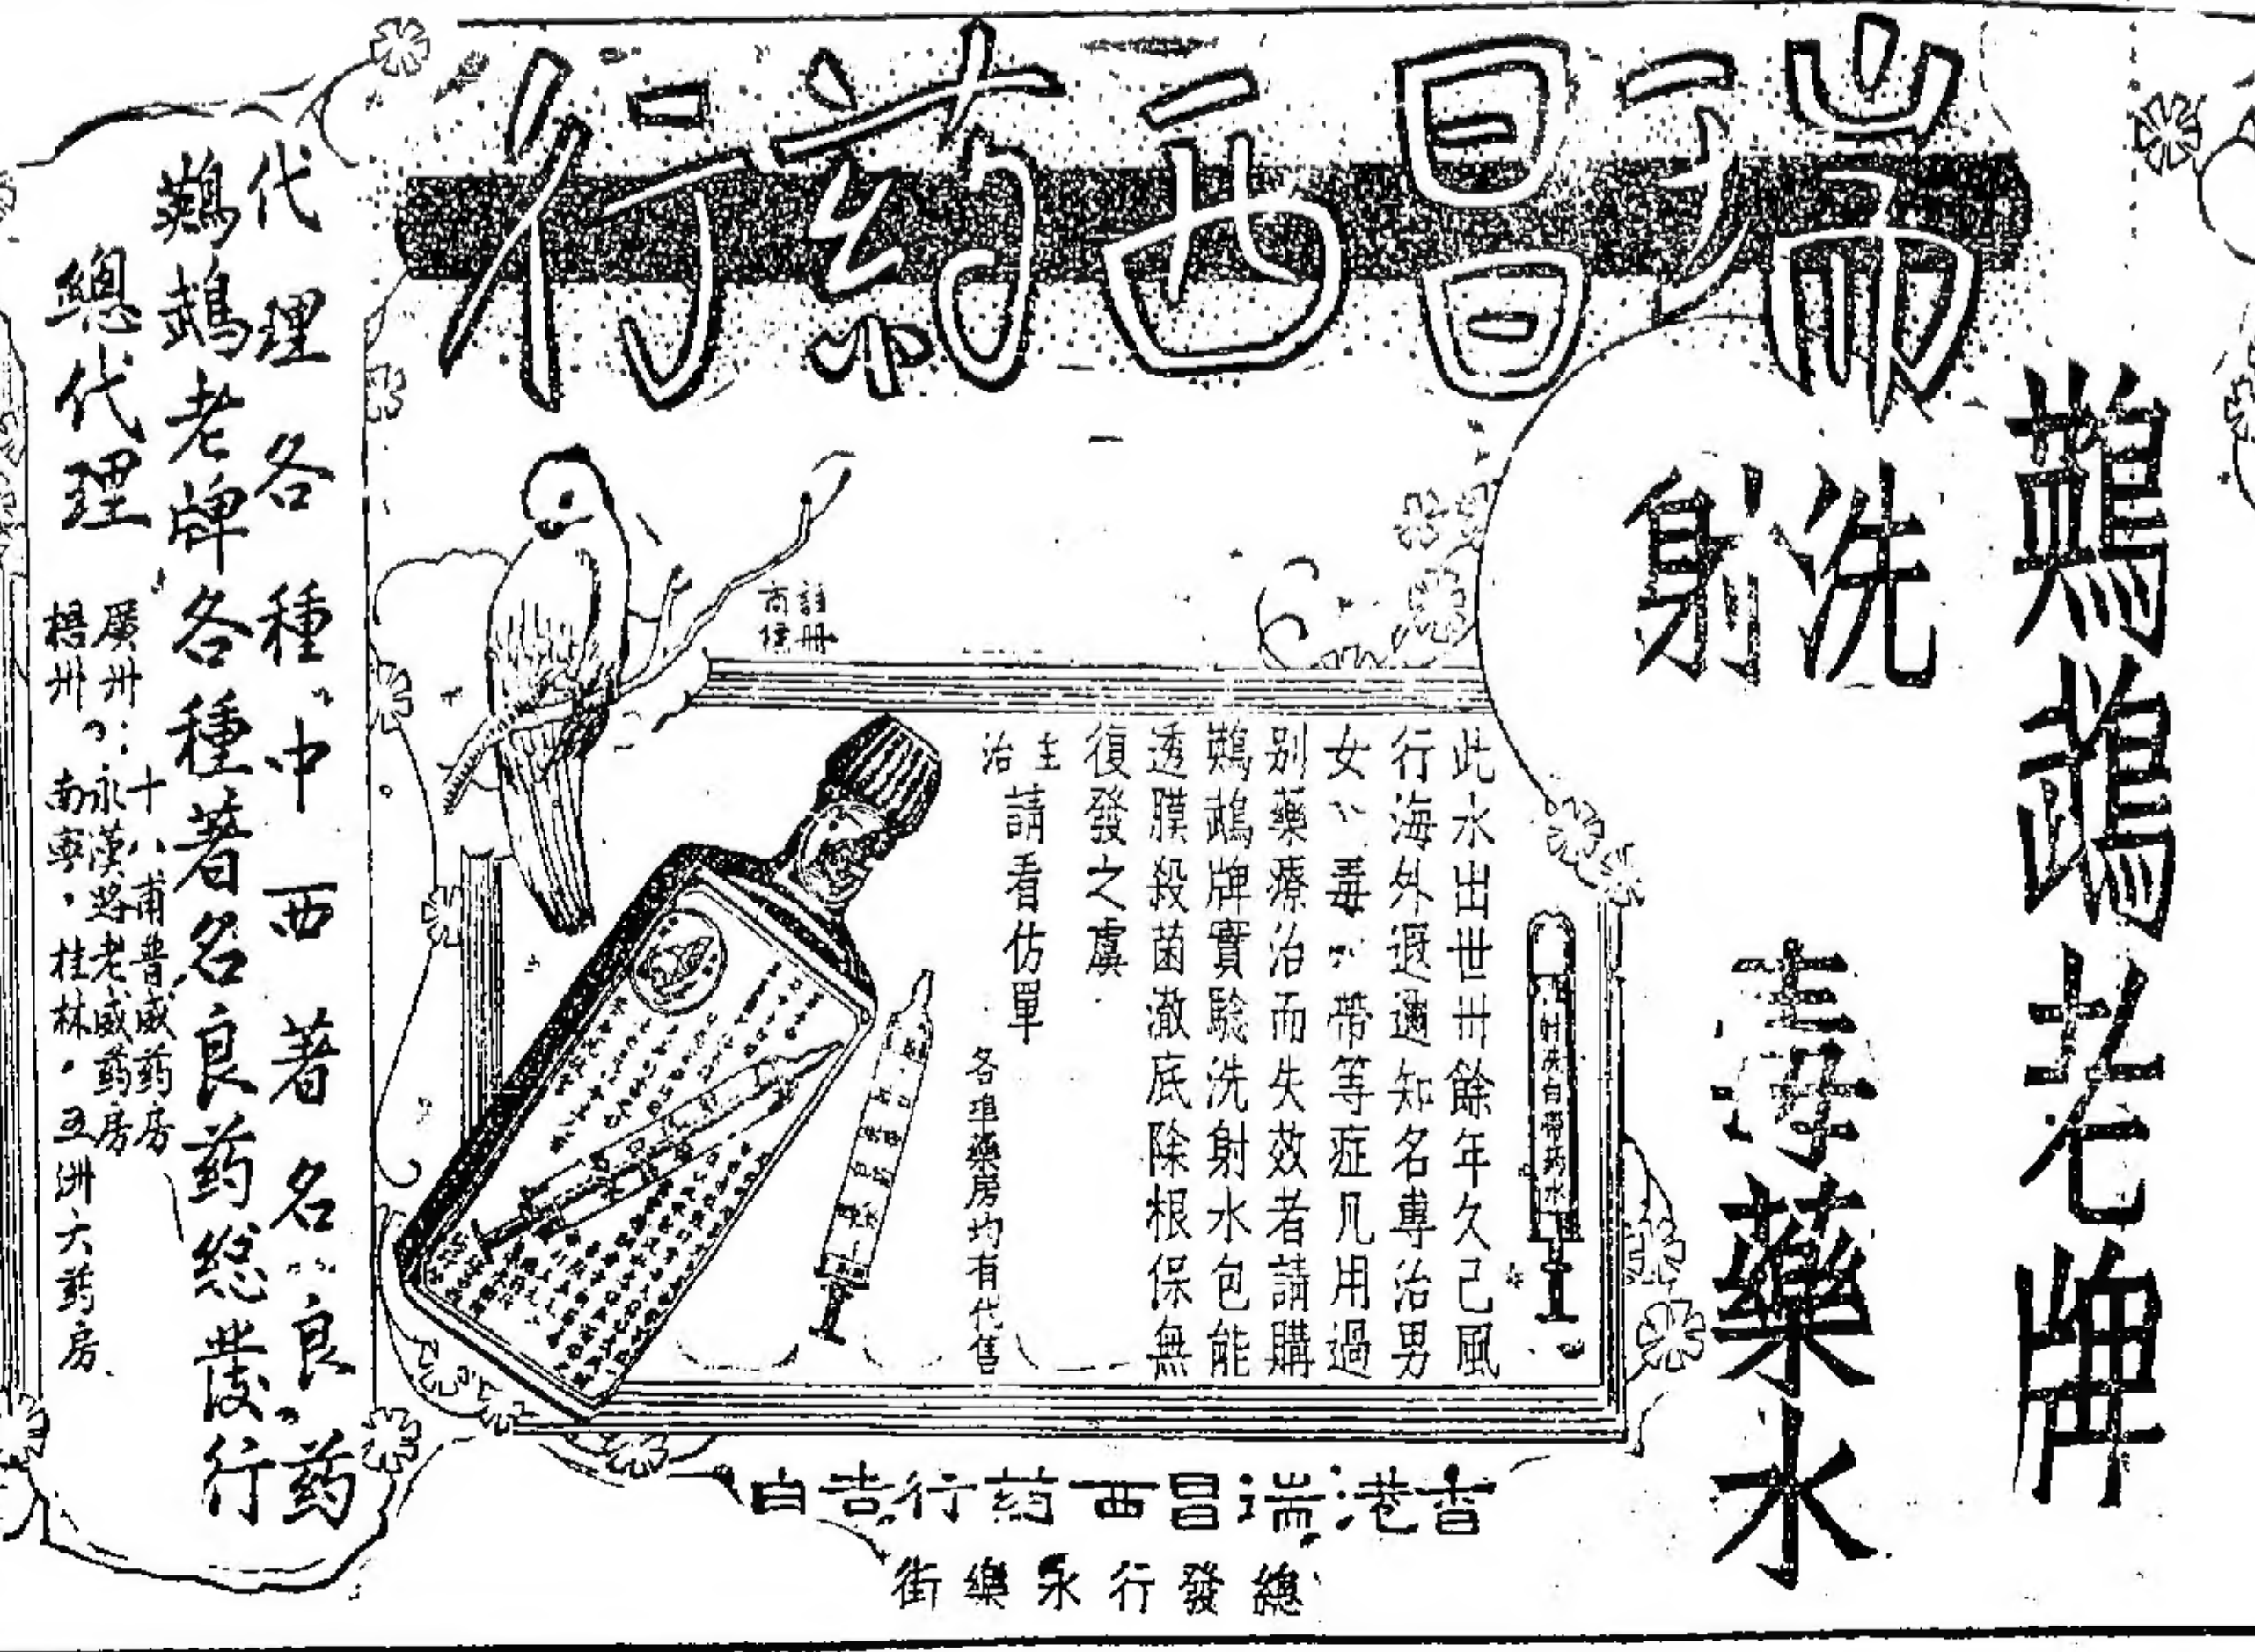 瑞昌西药行
鷞鵡老牌
洗射
毒藥水
射洗白帶药水
此水出世卅餘年久己風
行海外遐邇知名專治男
女 毒 帶等症凡用過
別藥療治而失效者請購
鷞鵡牌實驗洗射水包能
透膜殺菌澈底除根保無
復發之虞
主治 請看仿單
各埠藥房均有代售
註冊
商標
香港瑞昌西药行吉白
總發行永樂街
代理各種中西著名良药
鷞鵡老牌各種著名良药总發行
總代理
廣州：十八甫普威药房
永漢路老威药房
梧州，南寧，桂林，五洲大药房